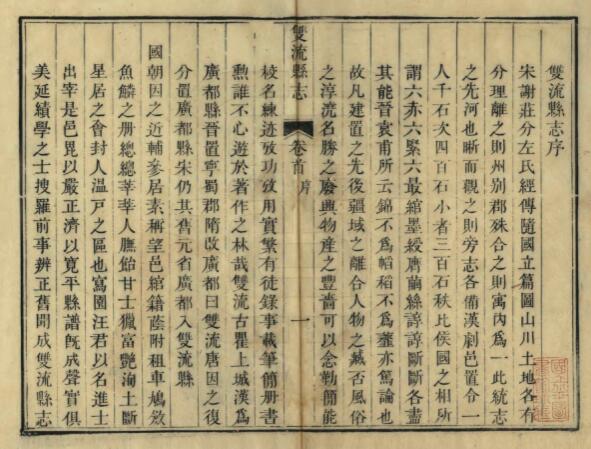 雙流縣志序
宋謝莊分左氏經傳隨國立篇圖山川土地各有
分理離之則州别郡殊合之則寓內爲一此統志
之先河也晰而觀之則旁志各備漢劇邑置令一
人千石次四百石小者三百石秩比侯國之相所
謂六赤六緊六最綰墨綬膺繭絲諄諄斷斷各盡
其能晉袁甫所云錦不爲幍稻不爲虀亦篤論也
故凡建置之先後疆域之離合人物之臧否風俗
之淳澆名勝之廢興物產之豐嗇可以念勒簡能
雙流縣志
卷首
序
一
校名練迹攷功效用實繁有徒錄事載筆簡册書
勲誰不心遊於著作之林哉雙流古瞿上城漢爲
廣都縣晉置寧蜀郡隋改廣都曰雙流唐因之復
分置廣都縣宋仍其舊元省廣都入雙流縣
國朝因之近輔參居素稱望邑綰籍蔭附租車鳩斂
魚鱗之册總總莘莘人膴飴甘士獵富艷洵土斷
星居之會封人溫戸之區也寫園汪君以名進士
出宰是邑毘以嚴正濟以寬平縣譜旣成聲實俱
美延績學之士搜羅前事辨正舊聞成雙流縣志